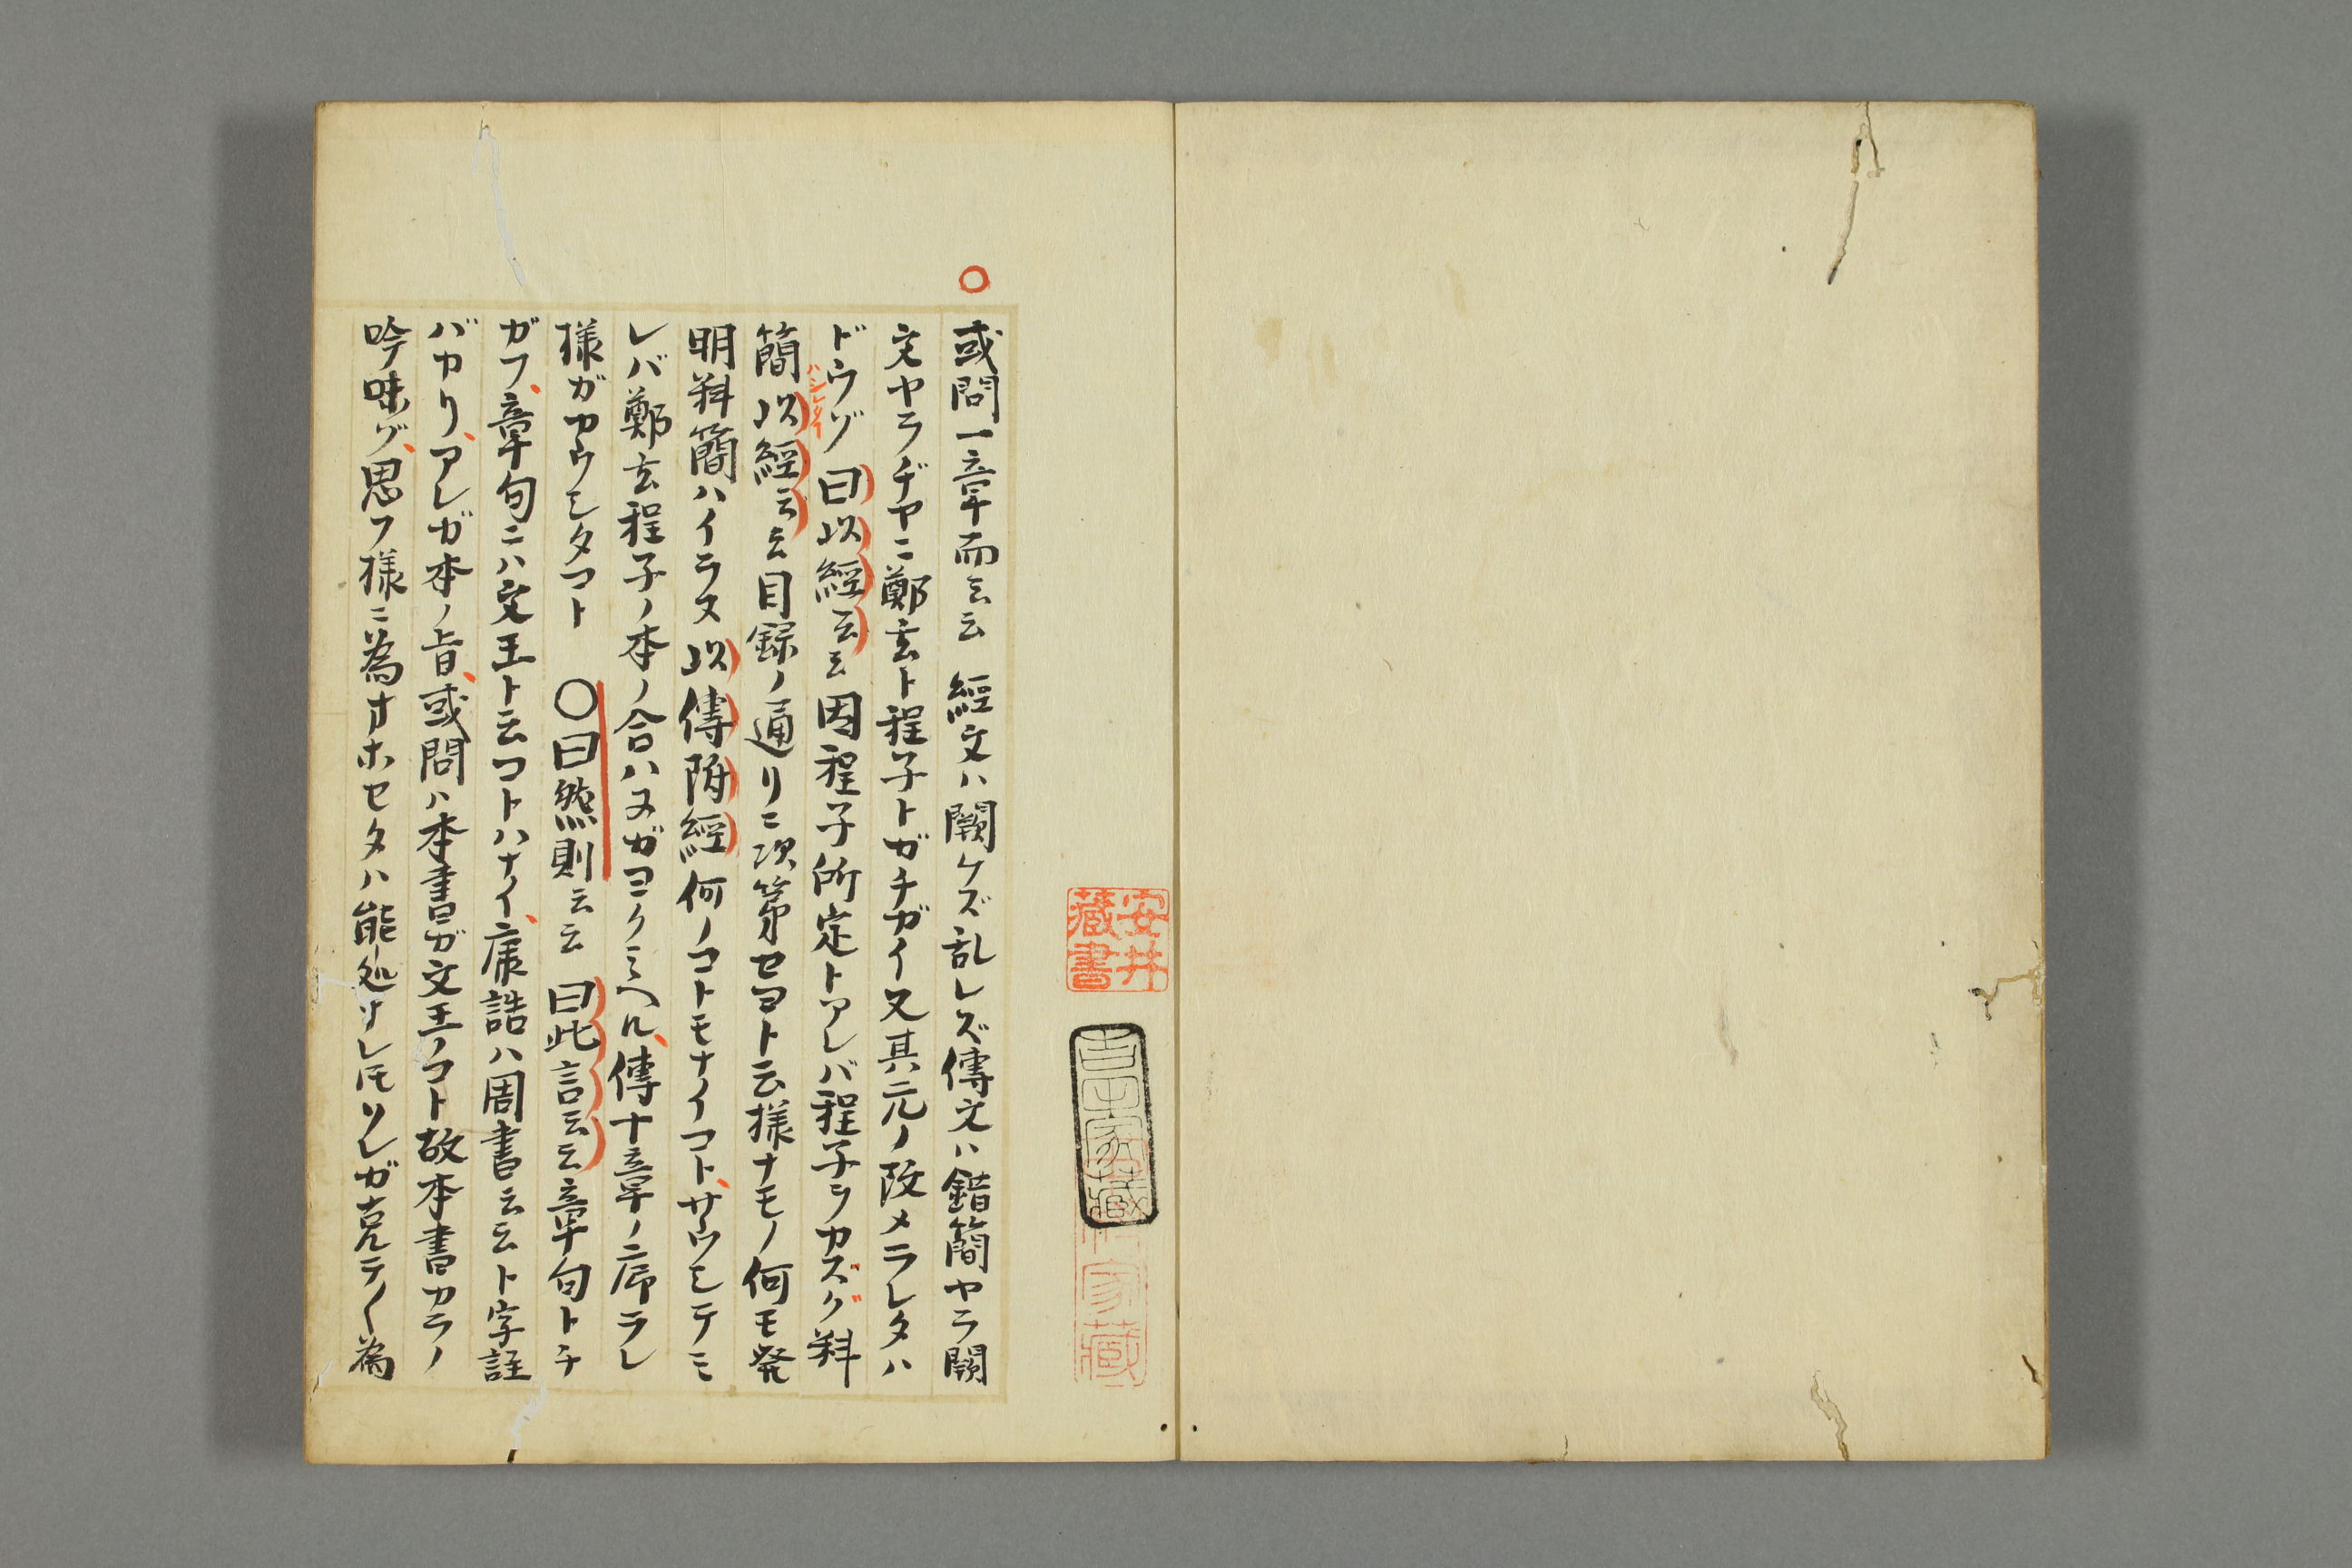 或問一章而云云 經文ハ闕ケズ乱レズ傳文ハ錯簡ヤラ闕
文ヤラヂヤニ鄭玄ト程子トガチガイ又其元ノ改メラレタハ
ドウゾ 曰以經云云 因程子所定トアレバ程子ヲカズグ料
簡以經云云目録ノ通リニ次第セヨト云様ナモノ何モ発
ハシレタイ
明料簡ハイラヌ 以傳附經 何ノコトモナイコト、サウシテミ
レバ鄭玄程子ノ本ノ合ハヌガヨクミヘル、傳十章ノ序ラレ
様ガカウシタコト ○曰然則云云 曰此言云云章句トチ
ガフ、章句ニハ文王ト云コトハナイ、康誥ハ周書云云ト字註
バカリ、アレガ本ノ旨、或問ハ本書ガ文王ノコト故本書カラノ
吟味ゾ、思フ様ニ為オホセタハ能処サレ𪜈ソレガ克テノ〱為
安井
藏書
家藏